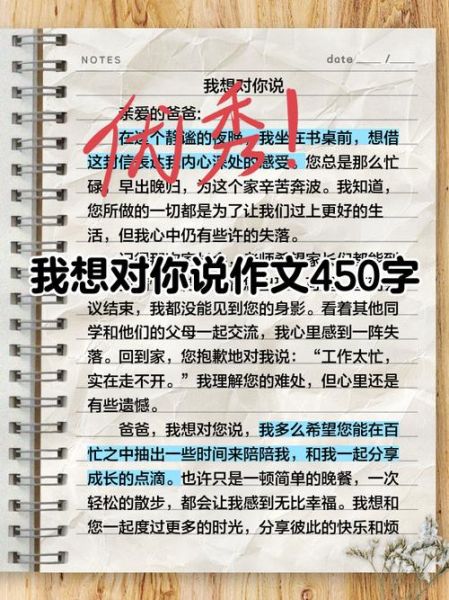 NOTES
date ___ /___
我想对你说
亲爱的爸爸:
优秀!
在这个静谧的夜晚，我坐在书桌前，想借
这封信表达我内心深处的感受。您总是那么忙
碌，早出晚归，为这个家辛苦奔波。我知道，
您所做的一切都是为了让我们过上更好的生
活，但我心中仍有些许的失落。
我想对你说作文450字
议结束，我都没能见到您的身影。看着其他同
学和他们的父母一起交流，我心里感到一阵失
落。回到家，您抱歉地对我说：“工作太忙，
实在走不开。”我理解您的难处，但心里还是
有些遗憾。
爸爸，我想对您说，我多么希望您能在百
忙之中抽出一些时间来陪陪我，和我一起分享
成长的点滴。也许只是一顿简单的晚餐，一次
轻松的散步，都会让我感到无比幸福。我想和
您一起度过更多的时光，分享彼此的快乐和烦